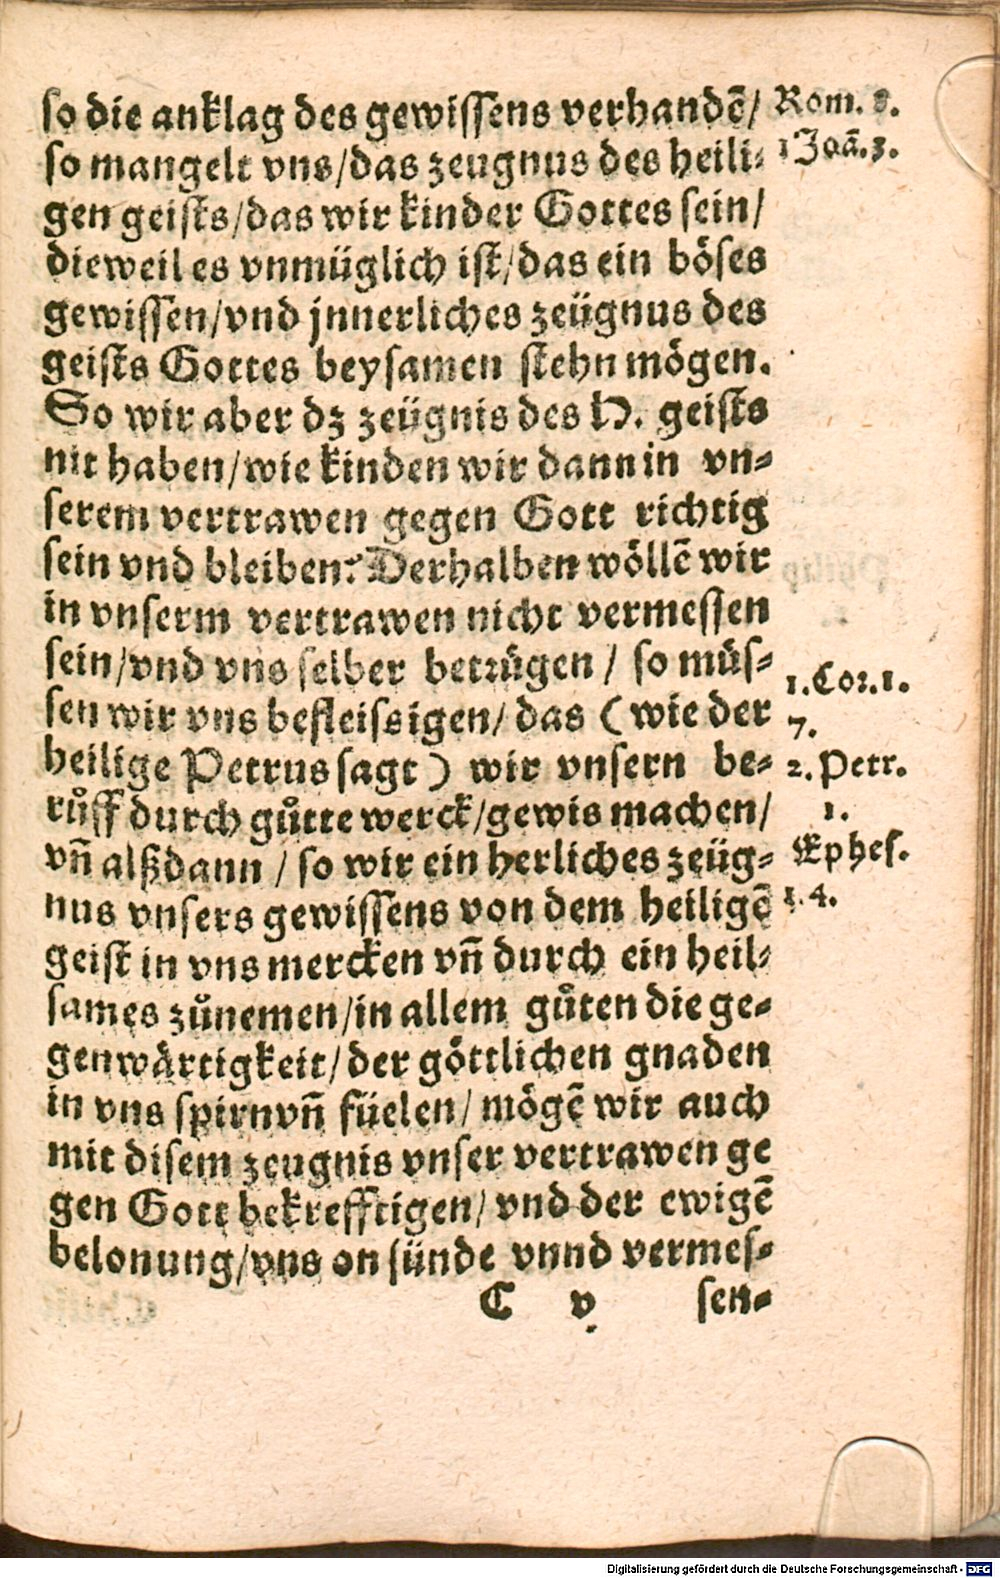 so die anklag des gewissens verhandē/
so mangelt vns/das zeugnus des heili-
gen geists/das wir kinder Gottes sein/
dieweil es vnmüglich ist/das ein böses
gewissen/vnd jnnerliches zeügnus des
geists Gottes beysamen stehn mögen.
So wir aber dz zeügnis des H. geists
nit haben/wie kinden wir dann in vn-
serem vertrawen gegen Gott richtig
sein vnd bleiben? Derhalben wöllē wir
in vnserm vertrawen nicht vermessen
sein/vnd vns selber betrügen / so müs-
sen wir vns befleissigen/ das ( wie der
heilige Petrus sagt ) wir vnsern be-
růff durch gůtte werck/gewis machen/
vñ alßdann / so wir ein herliches zeüg-
nus vnsers gewissens von dem heiligē
geist in vns mercken vñ durch ein heil-
sames zůnemen/in allem gůten die ge-
genwärtigkeit/der göttlichen gnaden
in vns spirn vñ füelen/ mögē wir auch
mit disem zeugnis vnser vertrawen ge
gen Gott bekrefftigen/ vnd der ewigē
belonung/vns on sünde vnnd vermes-
C v sen-
Rom. 8.
1 Joā. 3.
1. Cor. 1.
7.
2. Petr.
1.
Ephes.
1. 4.
Digitalisierung gefördert durch die Deutsche Forschungsgemeinschaft - DFG